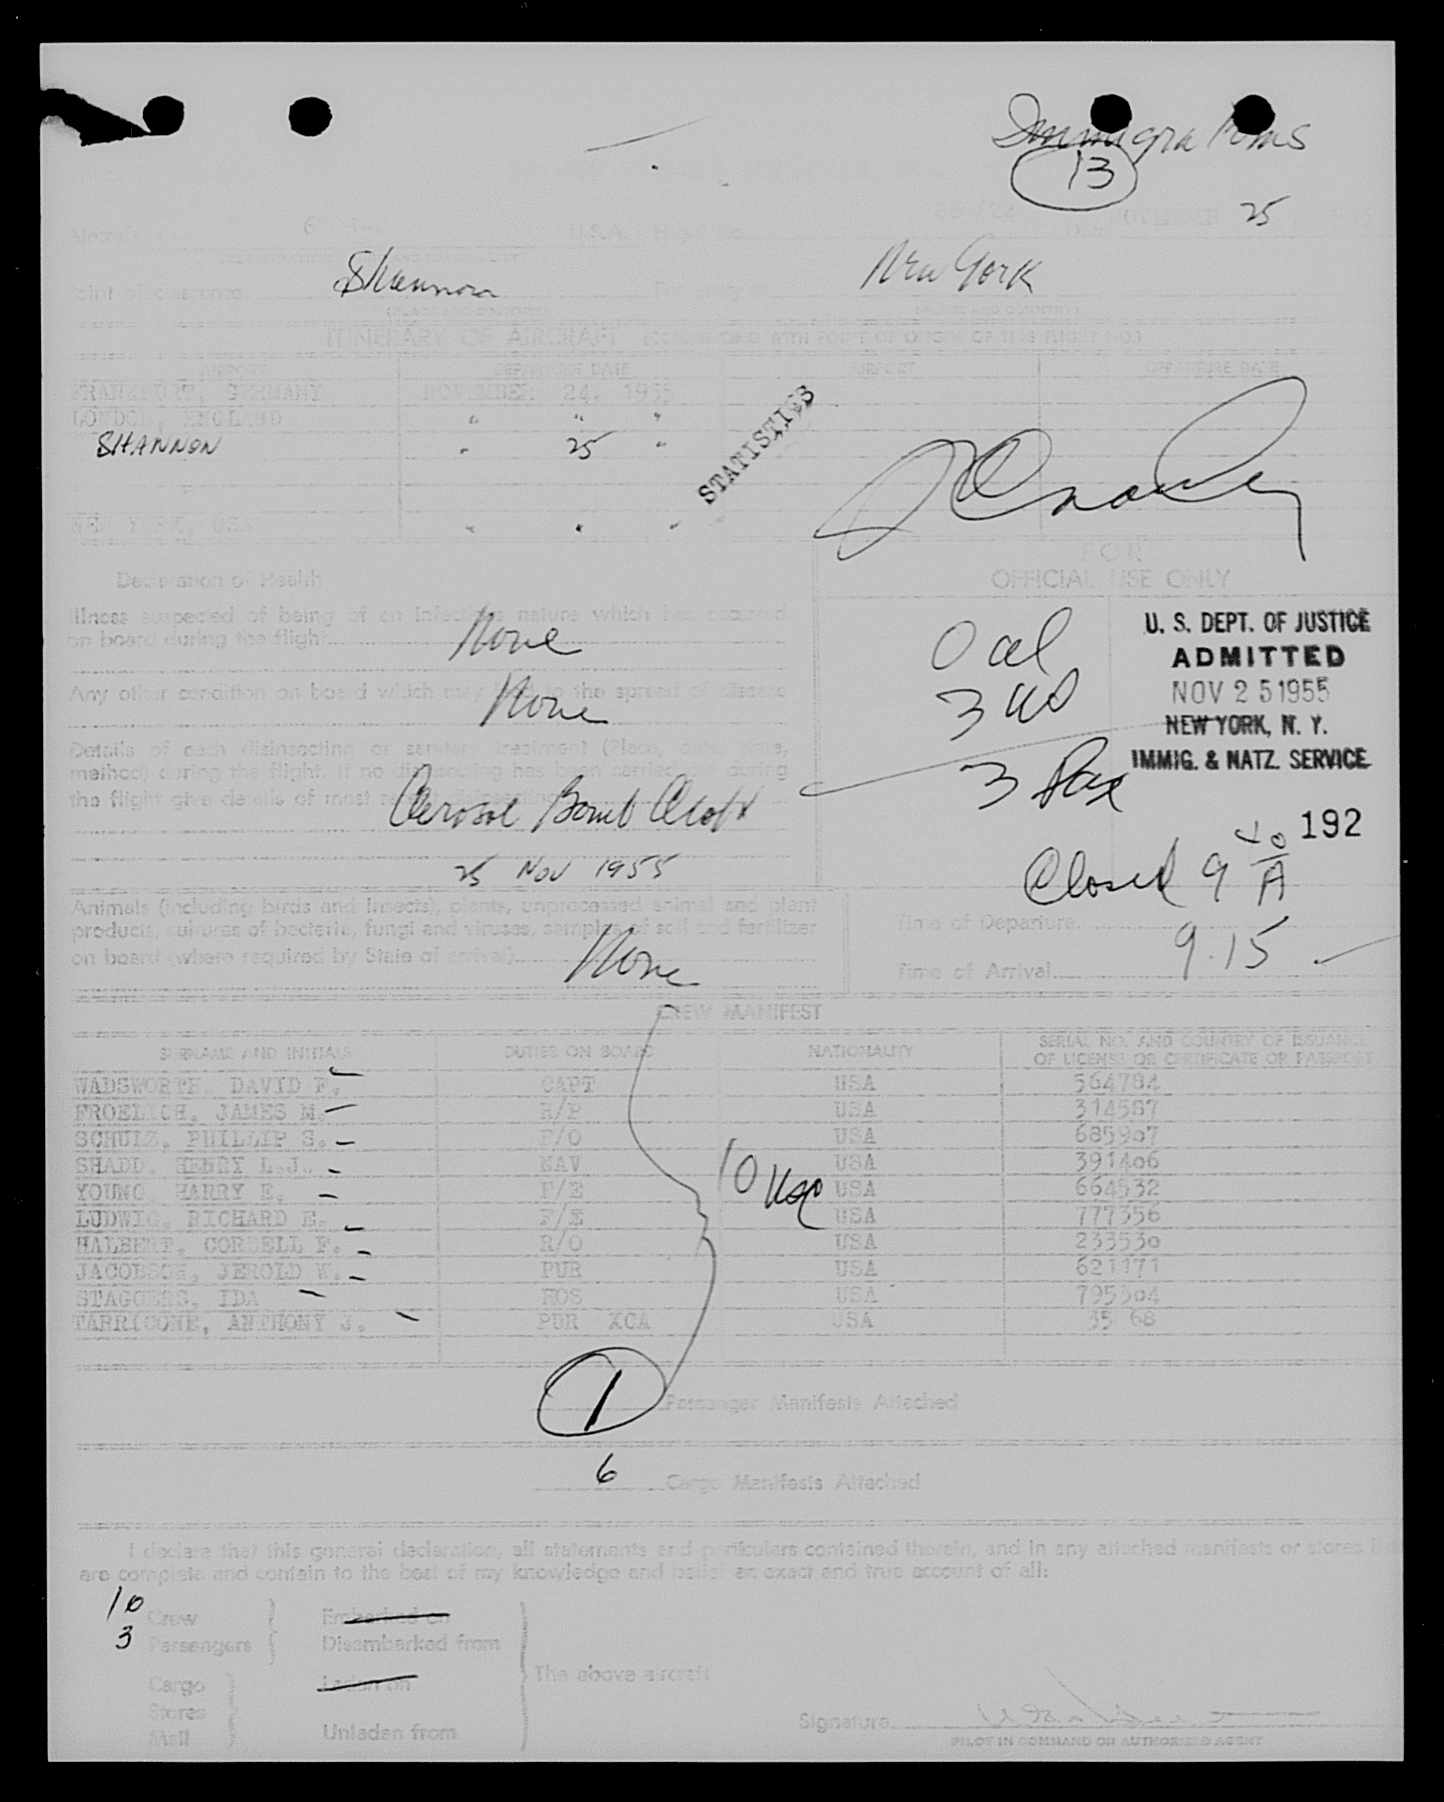 Immigrations
13
25
U.S.A.
Shannon
New York
ITINERARY OF AIRCRAFT
AIRPORT DEPARTURE DATE AIRPORT DEPARTURE DATE
FRANKFURT, GERMANY NOVEMBER 24, 1955
LONDON, ENGLAND " " "
SHANNON " 25 "
STATISTICS
NEW YORK, USA " " "
Declaration of Health
FOR
OFFICIAL USE ONLY
Illness suspected of being of an infectious nature which has occurred
on board during the flight
None
Any other condition on board which may lead to the spread of disease
None
Details of each disinsecting or sanitary treatment (Place, date, time,
method) during the flight. If no disinsecting has been carried out during
the flight give details of most recent disinsecting
Aerosol Bomb
25 Nov 1955
3 Pax
U. S. DEPT. OF JUSTICE
ADMITTED
NOV 25 1955
NEW YORK, N. Y.
IMMIG. & NATZ. SERVICE
192
Closed 9 40 A
Animals (including birds and insects), plants, unprocessed animal and plant
products, cultures of bacteria, fungi and viruses, samples of soil and fertilizer
on board (where required by State of arrival)
None
Time of Departure
9.15
Time of Arrival
CREW MANIFEST
SURNAME AND INITIALS DUTIES ON BOARD NATIONALITY SERIAL NO. AND COUNTRY OF ISSUANCE
OF LICENSE OR CERTIFICATE OR PASSPORT
WADSWORTH, DAVID F. CAPT USA 564784
FROELICH, JAMES M. USA 314587
SCHULZ, PHILLIP S. F/O USA 685907
SHADD, HENRY L.J. NAV USA 391406
YOUNG, HARRY E. F/E USA 664532
LUDWIG, RICHARD E. F/E USA 777356
HALBERT, CORDELL F. R/O USA 233530
JACOBSON, JEROLD W. PUR USA 621171
STAGGERS, IDA HOS USA 795304
TARRICONE, ANTHONY J. PUR XCA USA
10 USC
1 Passenger Manifests Attached
6 Cargo Manifests Attached
I declare that this general declaration, all statements and particulars contained therein, and in any attached manifests or stores
are complete and contain to the best of my knowledge and belief an exact and true account of all:
10 Crew Embarked on
3 Passengers Disembarked from
The above aircraft
Cargo Laden on
Stores
Mail Unladen from
Signature
PILOT IN COMMAND OR AUTHORIZED AGENT